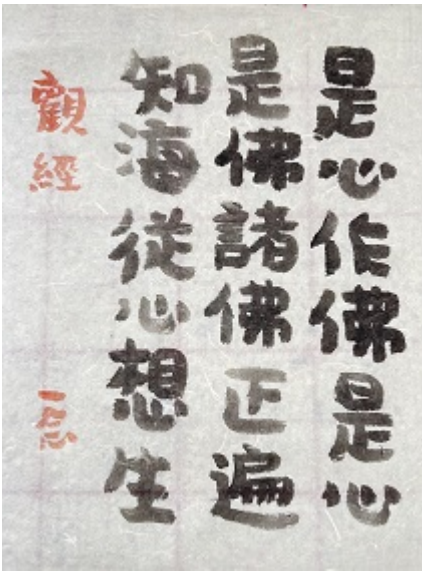 是心作佛是心
是佛諸佛正遍
知海從心想生
觀經
一念